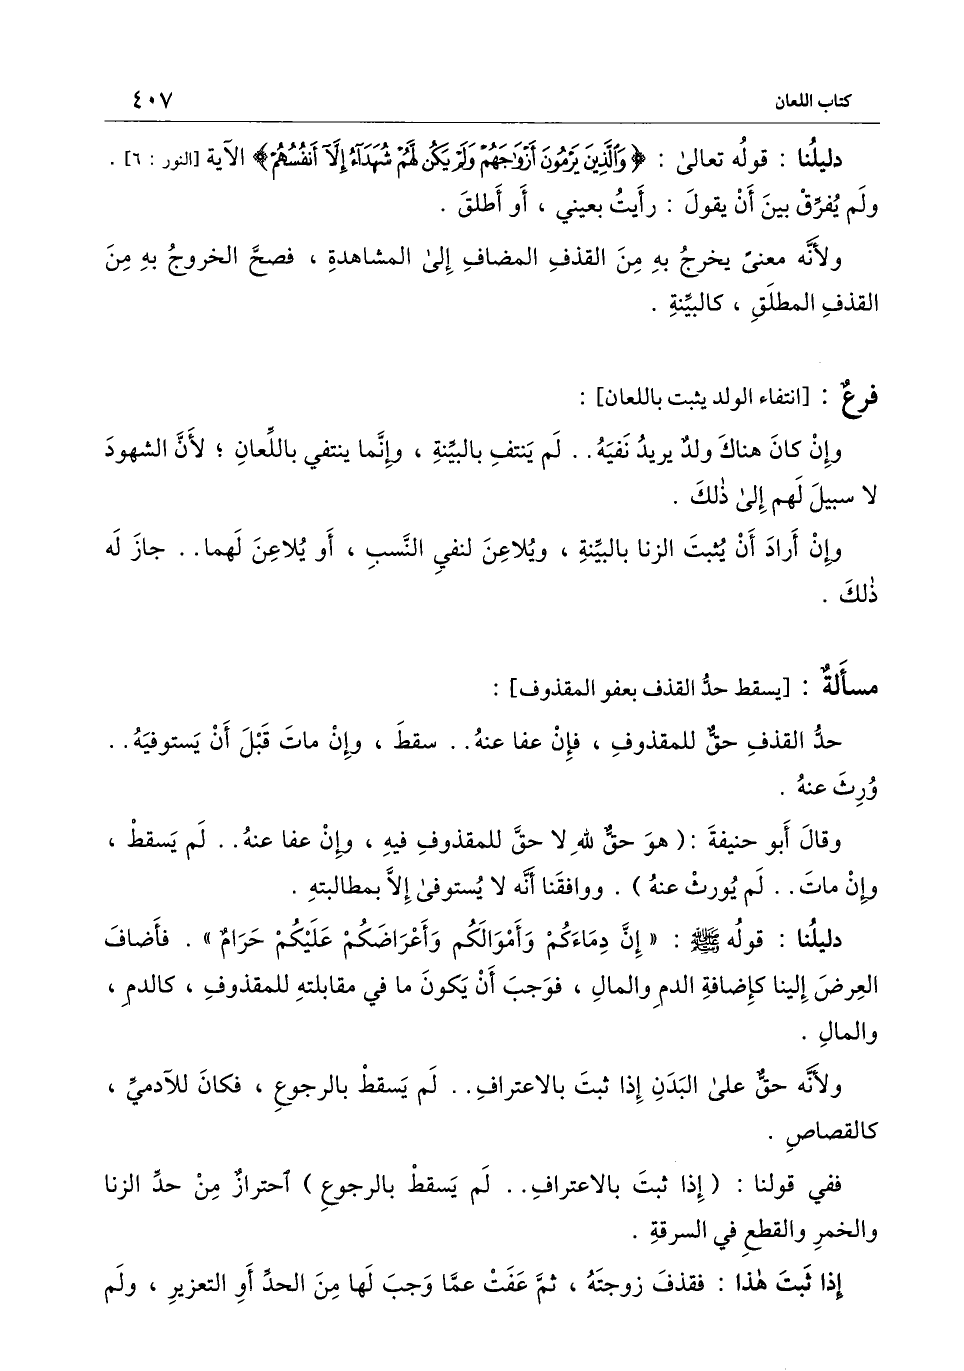 كتاب اللعان ٤٠٧
دليلُنا : قولُه تعالىٰ : ﴿ وَالَّذِينَ يَرْمُونَ أَزْوَاجَهُمْ وَلَمْ يَكُن لَّهُمْ شُهَدَاءُ إِلَّا أَنفُسُهُمْ ﴾ الآية [النور : ٦] .
ولَم يُفرِّقْ بينَ أَنْ يقولَ : رأَيتُ بعيني ، أَو أَطلقَ .
ولأَنَّه معنىً يخرجُ بهِ مِنَ القذفِ المضافِ إِلىٰ المشاهدةِ ، فصحَّ الخروجُ بهِ مِنَ
القذفِ المطلَقِ ، كالبيِّنةِ .
فرعٌ : [انتفاء الولد يثبت باللعان] :
وإِنْ كانَ هناكَ ولدٌ يريدُ نَفيَهُ . . لَم يَنتفِ بالبيِّنةِ ، وإِنَّما ينتفي باللِّعانِ ؛ لأَنَّ الشهودَ
لا سبيلَ لَهم إِلىٰ ذٰلكَ .
وإِنْ أَرادَ أَنْ يُثبتَ الزنا بالبيِّنةِ ، ويُلاعِنَ لنفيِ النَّسبِ ، أَو يُلاعِنَ لَهما . . جازَ لَه
ذٰلكَ .
مسأَلةٌ : [يسقط حدُّ القذف بعفو المقذوف] :
حدُّ القذفِ حقٌّ للمقذوفِ ، فإِنْ عفا عنهُ . . سقطَ ، وإِنْ ماتَ قَبْلَ أَنْ يَستوفيَهُ . .
وُرِثَ عنهُ .
وقالَ أَبو حنيفةَ : ( هوَ حقٌّ للهِ لا حقَّ للمقذوفِ فيهِ ، وإِنْ عفا عنهُ . . لَم يَسقطْ ،
وإِنْ ماتَ . . لَم يُورثْ عنهُ ) . ووافقَنا أَنَّه لا يُستوفىٰ إِلاَّ بمطالبتهِ .
دليلُنا : قولُه ﷺ : « إِنَّ دِمَاءَكُمْ وَأَمْوَالَكُم وَأَعْرَاضَكُمْ عَلَيْكُمْ حَرَامٌ » . فأَضافَ
العِرضَ إِلينا كإِضافةِ الدمِ والمالِ ، فوَجبَ أَنْ يَكونَ ما في مقابلتهِ للمقذوفِ ، كالدمِ ،
والمالِ .
ولأَنَّه حقٌّ علىٰ البَدَنِ إِذا ثبتَ بالاعترافِ . . لَم يَسقطْ بالرجوعِ ، فكانَ للآدميِّ ،
كالقصاصِ .
ففي قولنا : ( إِذا ثبتَ بالاعترافِ . . لَم يَسقطْ بالرجوعِ ) ٱحترازٌ مِنْ حدِّ الزنا
والخمرِ والقطعِ في السرقةِ .
إِذا ثَبتَ هٰذا : فقذفَ زوجتَهُ ، ثمَّ عَفَتْ عمَّا وَجبَ لَها مِنَ الحدِّ أَوِ التعزيرِ ، ولَم